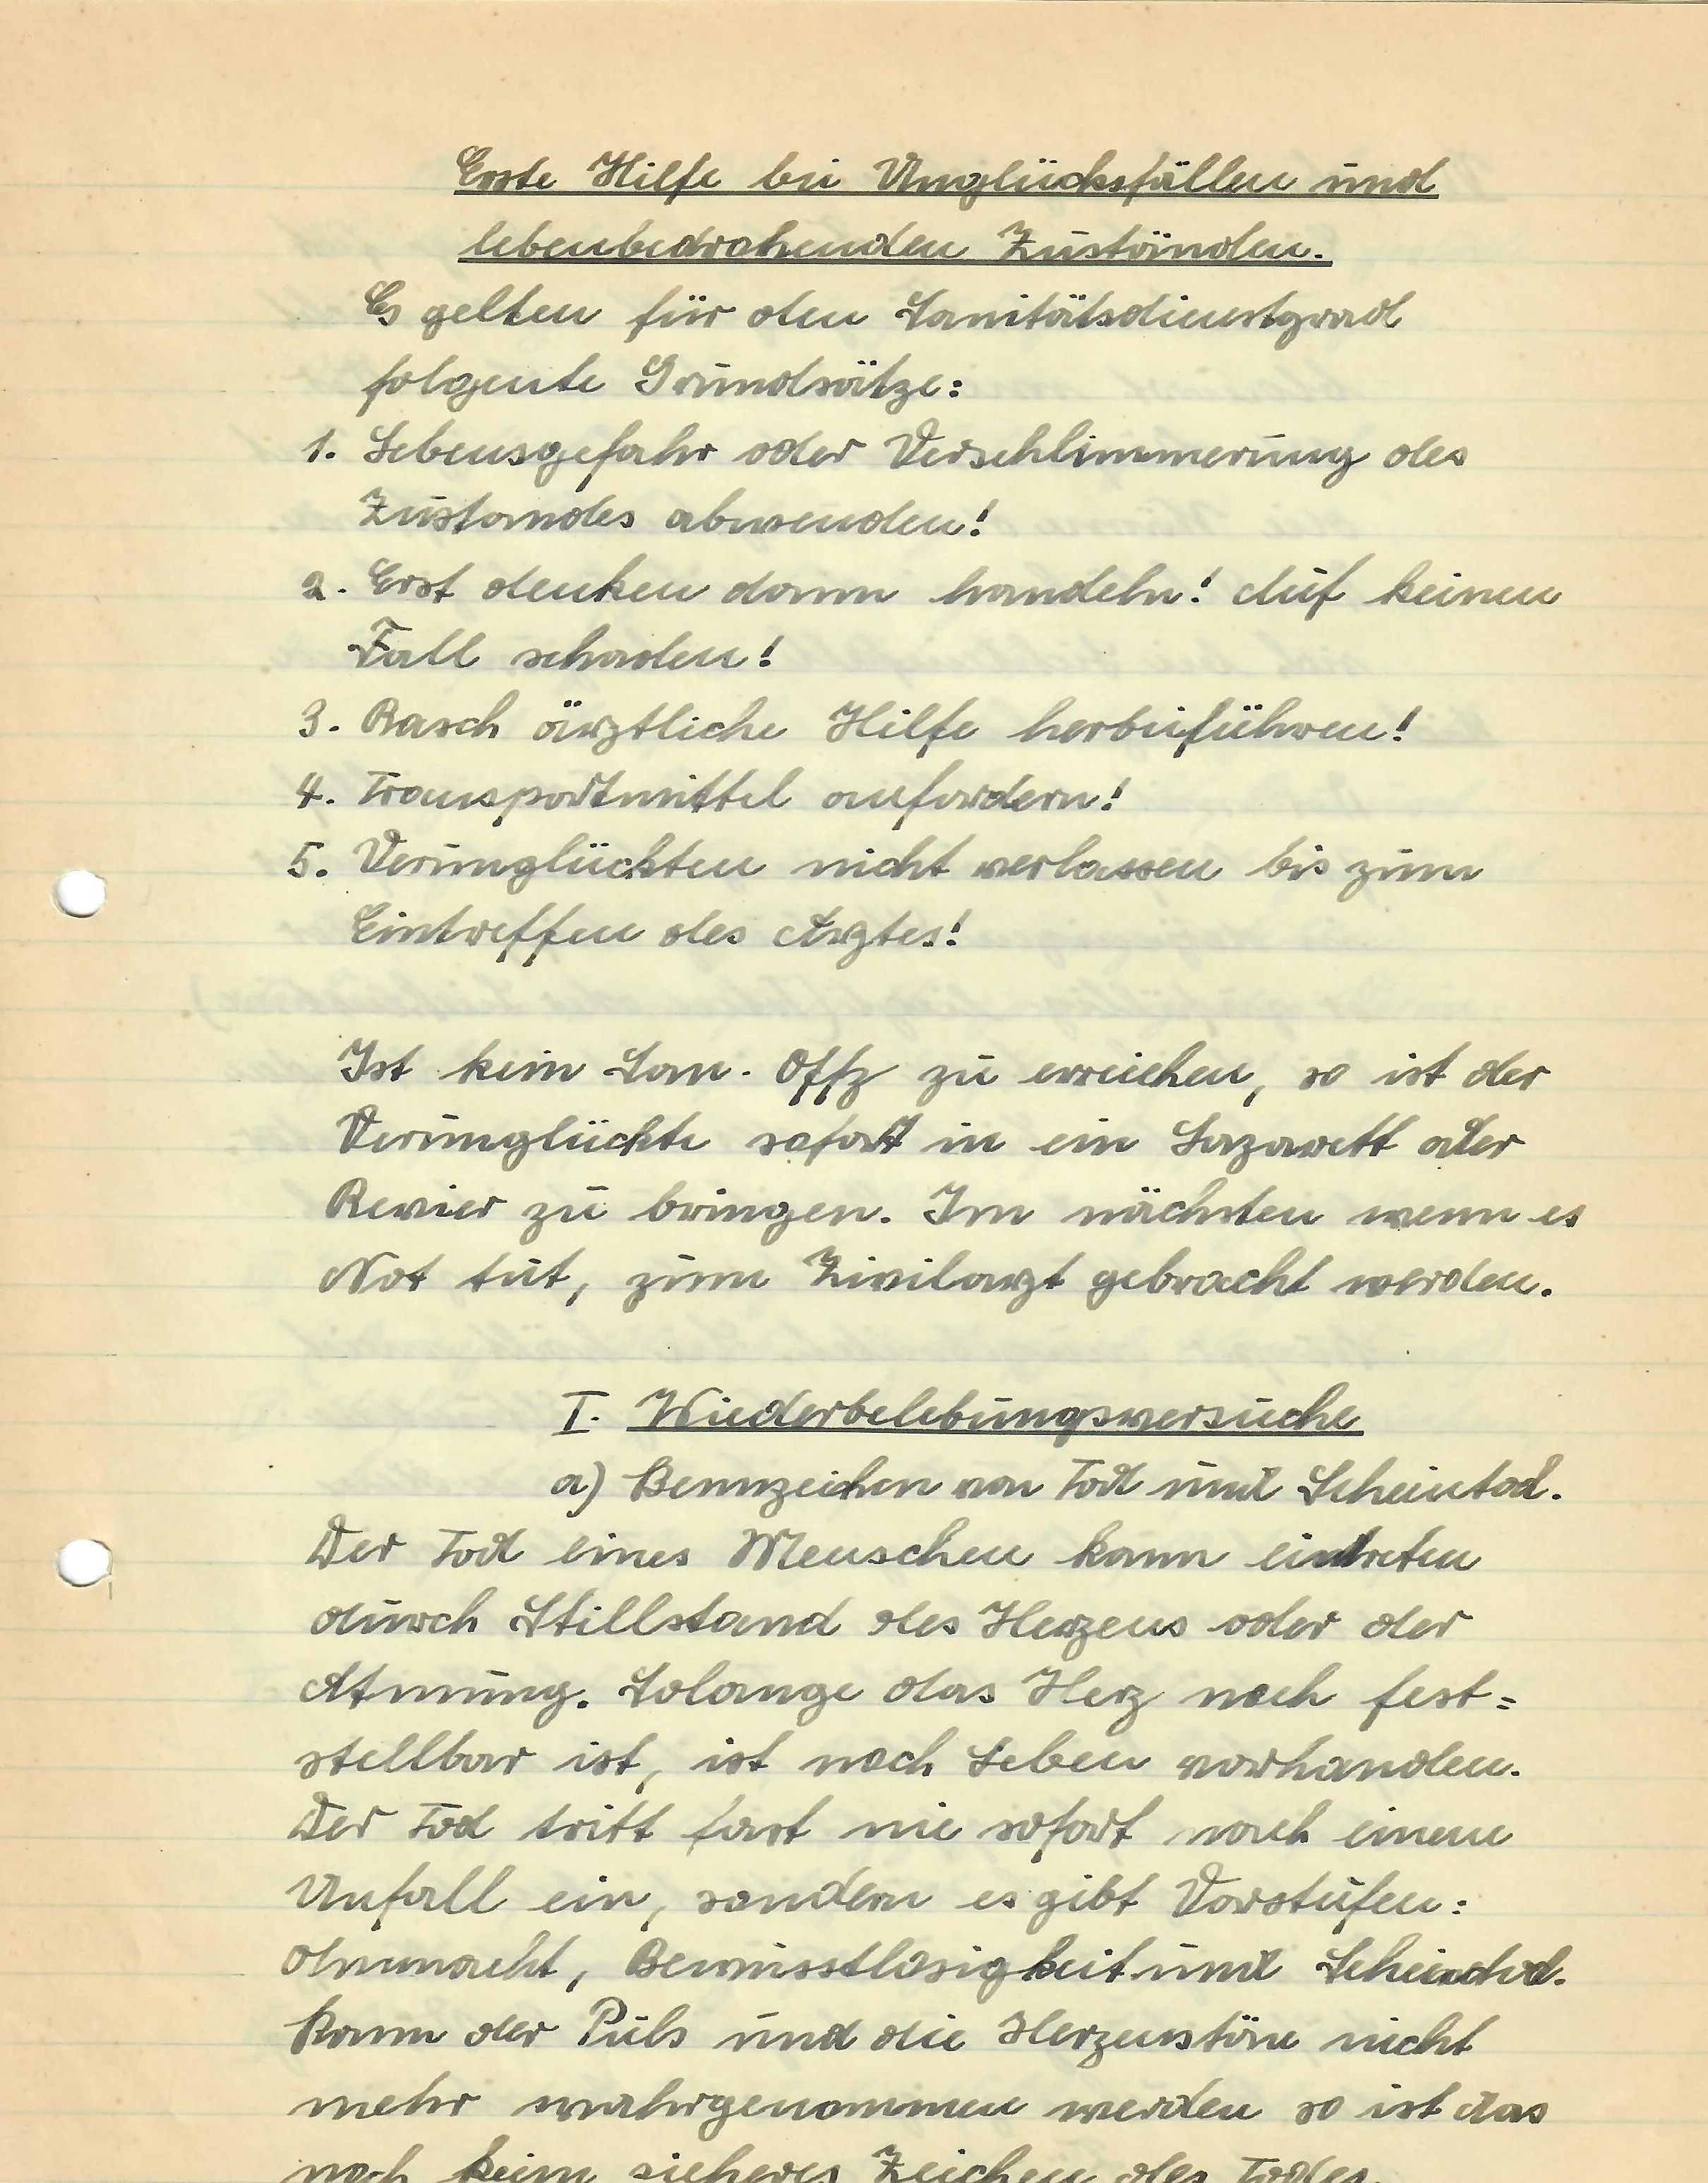 Erste Hilfe bei Unglücksfällen und
lebenbedrohenden Zuständen.
Es gelten für den Sanitätsdienstgrad
folgente Grundsätze:
1. Lebensgefahr oder Verschlimmerung des
Zustandes abwenden!
2. Erst denken dann handeln! Auf keinen
Fall schaden!
3. Rasch ärztliche Hilfe herbeiführen!
4. Transportmittel anfordern!
5. Verunglückten nicht verlassen bis zum
Eintreffen des Arztes!
Ist kein San. Offz zu erreichen, so ist der
Verunglückte sofort in ein Lazarett oder
Revier zu bringen. Im nächsten wenn es
Not tut, zum Zivilarzt gebracht werden.
I. Wiederbelebungsversuche
a) Kennzeichen von Tod und Scheintod.
Der Tod eines Menschen kann eintreten
durch Stillstand des Herzens oder der
Atmung. Solange das Herz noch fest=
stellbar ist, ist noch Leben vorhanden.
Der Tod tritt fast nie sofort nach einem
Unfall ein, sondern es gibt Vorstufen:
Ohnmacht, Bewusstlosigkeit und Scheintod.
Kann der Puls und die Herzenstöne nicht
mehr wahrgenommen werden so ist das
noch kein sicheres Zeichen des Todes.